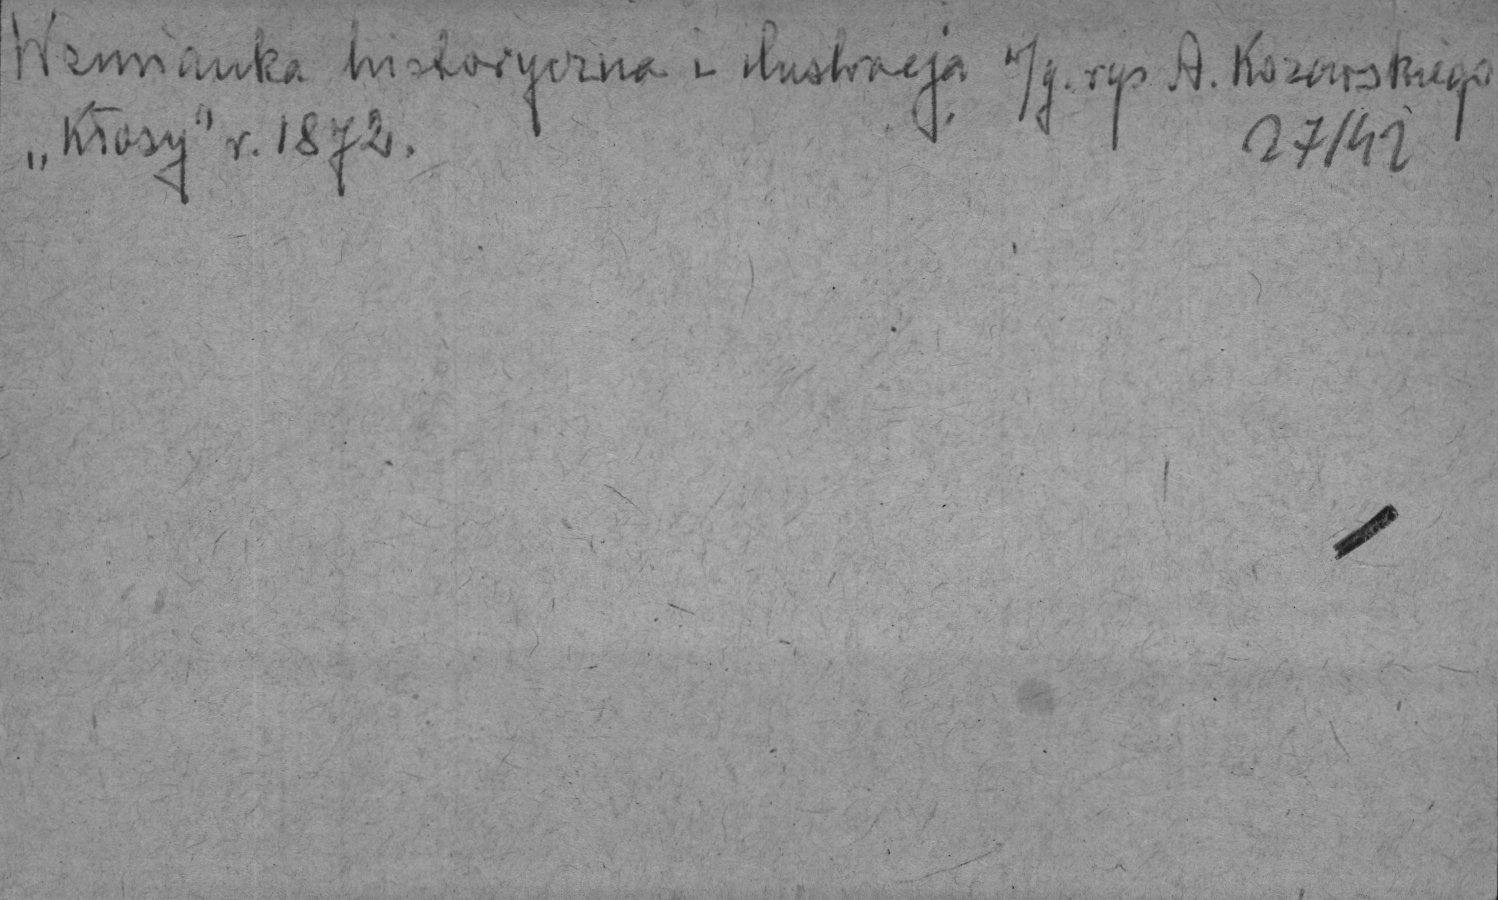 Wzmianka historyczna i ilustracja w/g. rys A. Kozarskiego
„Kłosy" r. 1872. 27/42